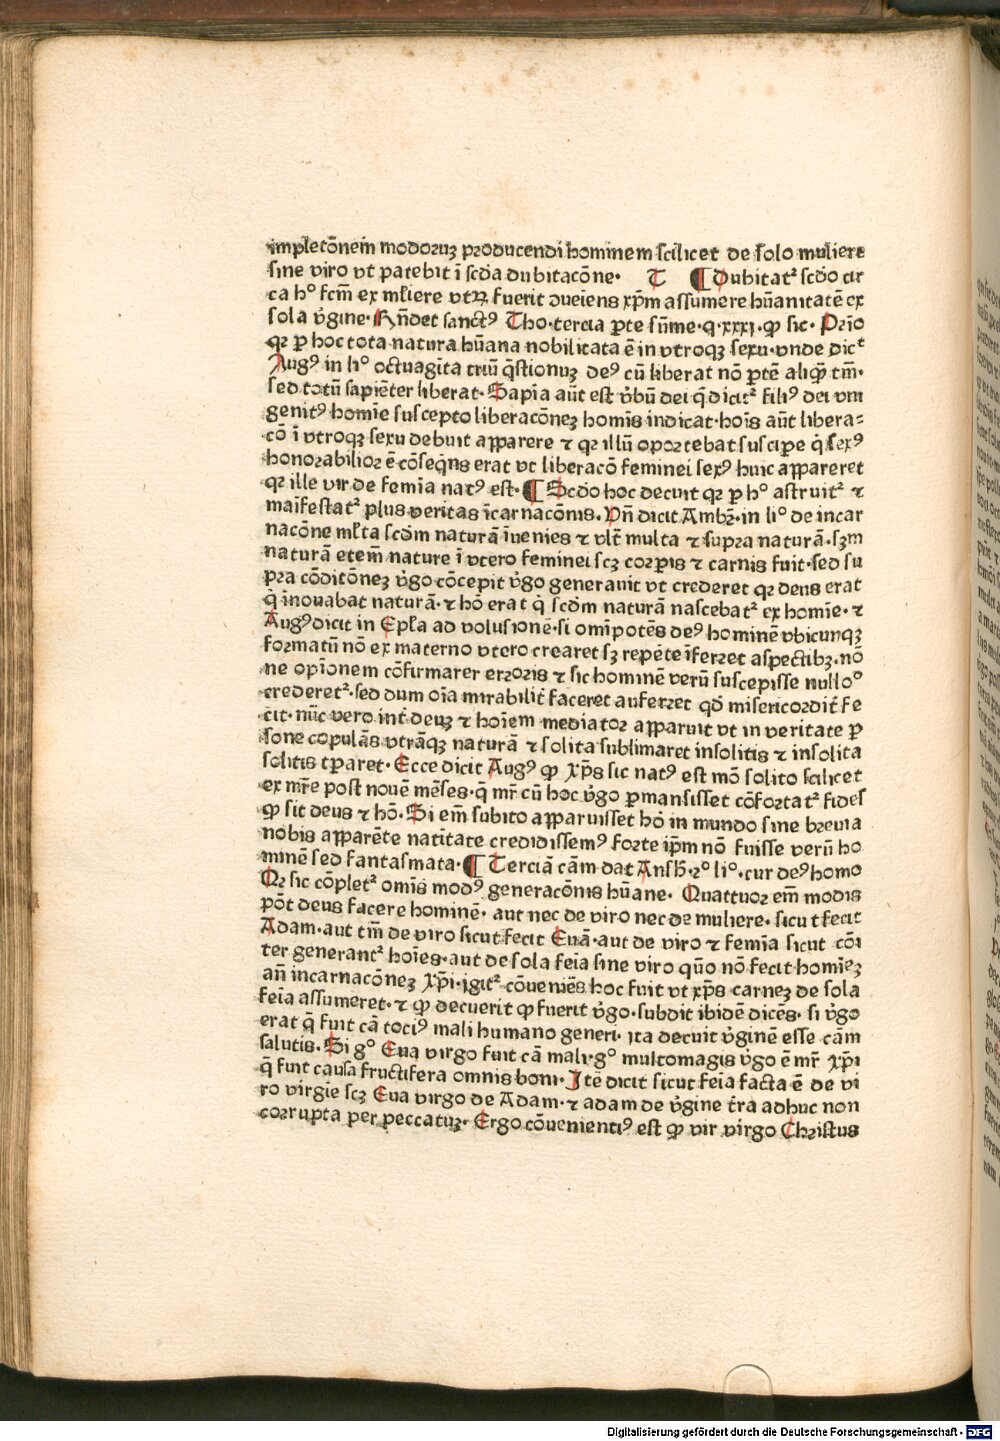 impletōnem modoꝝ producendi hominem scilicet de solo muliere
sine viro vt patebit ī scd̄a dubitacōne· T ¶ Dubitat² scd̄o cir
ca h° fcm̄ ex mĺiere vtꝝ fuerit dueiens xp̄m assumere hūanitatē ex
sola v̄gine· Rn̄det sanctꝰ Tho·tercia p̱te sūme·q·xxxi·ꝙ sic· Prīo
qꝛ p̱ hoc tota natura hūana nobilitata ē in vtroqꝫ sexu·vnde dicᵗ
Augꝰ in h° octuagīta triū q̄stionuꝫ deꝰ cū liberat nō p̱tē aliq̄ꝫ tm̄·
sed totū sapiēter liberat· Sapīa aūt est v̄bū dei q̄ dicit² filiꝰ dei vni
genitꝰ homīe suscepto liberacōneꝫ homīs indicat·hoīs aūt libera⸗
cō ī vtroqꝫ sexu debuit apparere ⁊ qꝛ illū oportebat suscipe q̇ sexꝰ
honorabilior ē cōseq̄ns erat vt liberacō feminei sexꝰ huic appareret
qꝛ ille vir de femīa natꝰ est· ¶ Scd̄o hoc decuit qꝛ p̱ h° astruit² ⁊
maīfestat² plus veritas īcarnacōnis. Vn̄ dicit Ambꝫ·in li° de incar
nacōne mĺta scdm̄ naturā īuenies ⁊ vlt̄ multa ⁊ supra naturā·sꝫm
naturā etem̄ nature ī vtero feminei scꝫ corp̱is ⁊ carnis fuit·sed su
pra cōditōneꝫ v̄go cōcepit v̄go generauit vt crederet qꝛ deus erat
q̇ īnouabat naturā·⁊ hō erat q̇ scdm̄ naturā nascebat² ex homīe·⁊
Augꝰ dicit in Epĺa ad volusionē·si omīpotēs deꝰ hominē vbicunqꝫ
formatū nō ex materno vtero crearet sꝫ repēte īferret aspectibꝫ·nō
ne opīonem cōfirmarer erroris ⁊ sic hominē verū suscepisse nullo°
crederet²·sed dum oīa mirabilit̄ faceret auferret qd̄ misericordit̄ fe
cit·nūc vero int̄ deuꝫ ⁊ hoīem mediator apparuit vt in veritate p̱
sone copulās vtrāqꝫ naturā ⁊ solita sublimaret insolitis ⁊ insolita
solitis tp̱aret· Ecce dicit Augꝰ ꝙ xp̄s sic natꝰ est mō solito scilicet
ex mr̄e post nouē mēses·q̄ mr̄ cū hoc v̄go p̱mansisset cōfortat² fides
ꝙ sit deus ⁊ hō· Si em̄ subito apparuisset hō in mundo sine breuia
nobis apparēte natītate credidissemꝰ forte ip̄m nō fuisse verū ho
minē sed fantasmata· ¶ Terciā cām dat Ansh̄·2° li°·cur deꝰ homo
Qꝛ sic cōplet² omīs modꝰ generacōnis hūane· Quattuor em̄ modis
pōt deus facere hominē· aut nec de viro nec de muliere· sicut fecit
Adam·aut tm̄ de viro sicut fecit Euā·aut de viro ⁊ femīa sicut cōi
ter generant² hoīes·aut de sola feīa sine viro quō nō fecit homīeꝫ
an̄ incarnacōneꝫ xp̄i·igit² cōueniēs hoc fuit vt xp̄s carneꝫ de sola
feīa assumeret·⁊ ꝙ decuerit ꝙ fuerit v̄go·subdit ibidē dicēs· si v̄go
erat q̄ fuit cā tociꝰ mali humano generi· ita decuit v̄ginē esse cām
salutis· Si g° Eua virgo fuit cā mali·g° multomagis v̄go ē mr̄ xp̄i
q̄ fuit causa fructifera omnis boni· Itē dicit sicut feīa facta ē de vi
ro virgīe scꝫ Eua virgo de Adam·⁊ adam de v̄gine t̄ra adhuc non
corrupta per peccatuꝫ· Ergo cōuenientiꝰ est ꝙ vir virgo Christus
Digitalisierung gefördert durch die Deutsche Forschungsgemeinschaft - DFG